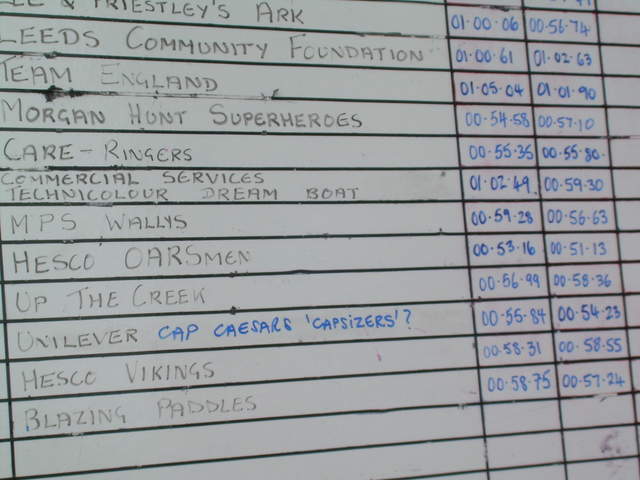 & PRIESTLEY'S ARK 01·00·06 00·56·74
LEEDS COMMUNITY FOUNDATION 01·00·61 01·02·63
TEAM ENGLAND 01·05·04 01·01·90
MORGAN HUNT SUPERHEROES 00·54·58 00·57·10
CARE-RINGERS 00·55·35 00·55·80
COMMERCIAL SERVICES
TECHNICOLOUR DREAM BOAT 01·02·49 00·59·30
MPS WALLYS 00·59·28 00·56·63
HESCO OARSMEN 00·53·16 00·51·13
UP THE CREEK 00·56·99 00·58·36
UNILEVER CAP CAESARS 'CAPSIZERS'? 00·55·84 00·54·23
HESCO VIKINGS 00·58·31 00·58·55
BLAZING PADDLES 00·58·75 00·57·24